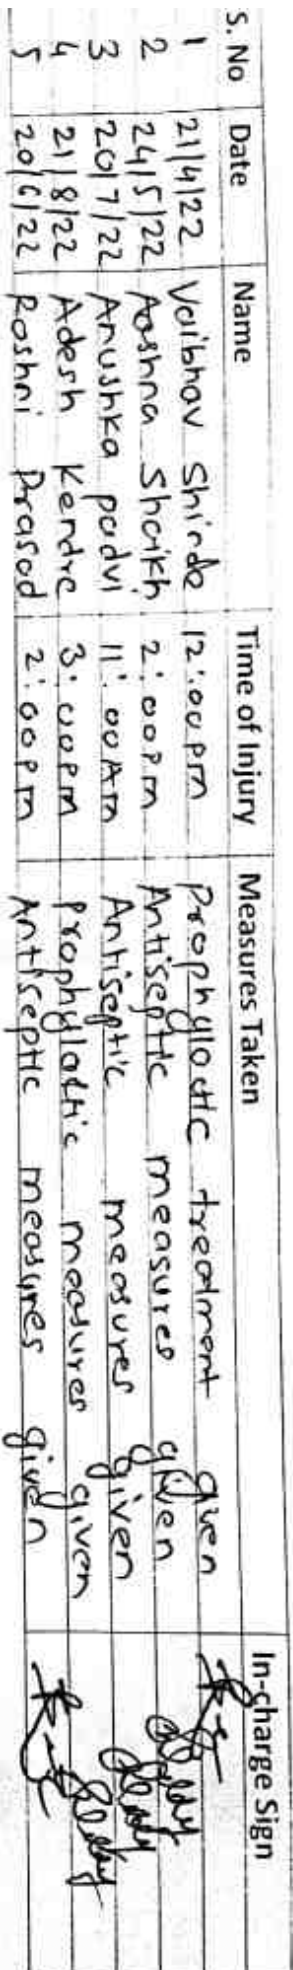 S. No Date Name Time of Injury Measures Taken In-charge Sign
1 21/4/22 Vaibhav Shinde 12:00 pm Prophylactic treatment given
2 24/5/22 Aashna Shaikh 2:00 P.m Antiseptic measures given
3 20/7/22 Anushka padvi 11:00 Am Antiseptic measures given
4 21/8/22 Adesh Kendre 3:00 pm prophylactic measures given
5 20/6/22 Roshni Prasad 2:00 pm Antiseptic measures given